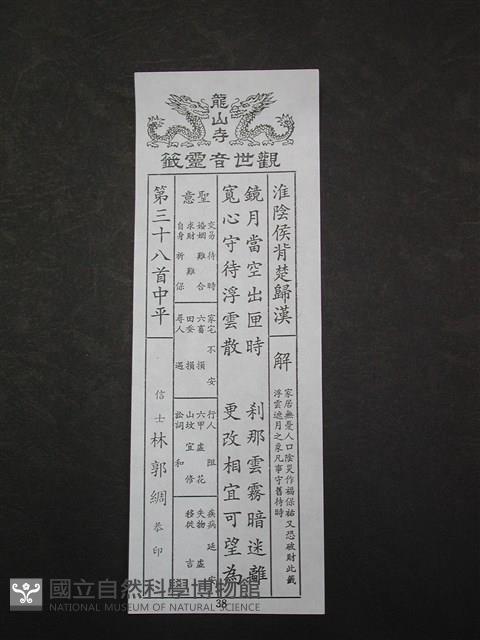 龍山寺
觀世音靈籤
淮陰侯背楚歸漢
解
家居無憂人口陰災作福保祐又恐破財此籤
浮雲遮月之象凡事守舊待時
鏡月當空出匣時 剎那雲霧暗迷離
寬心守待浮雲散 更改相宜可望為
聖意
交易 待時
婚姻 難合
求財 難
自身 祈保
家宅 不安
六畜 損
田蚕 損
尋人 遇
行人 阻
六甲 虛花
山坟 宜修
訟詞 和
疾病 延安
失物 虛
移徙 吉
第三十八首中平
信士 林郭綢 恭印
38
國立自然科學博物館
NATIONAL MUSEUM OF NATURAL SCIENCE